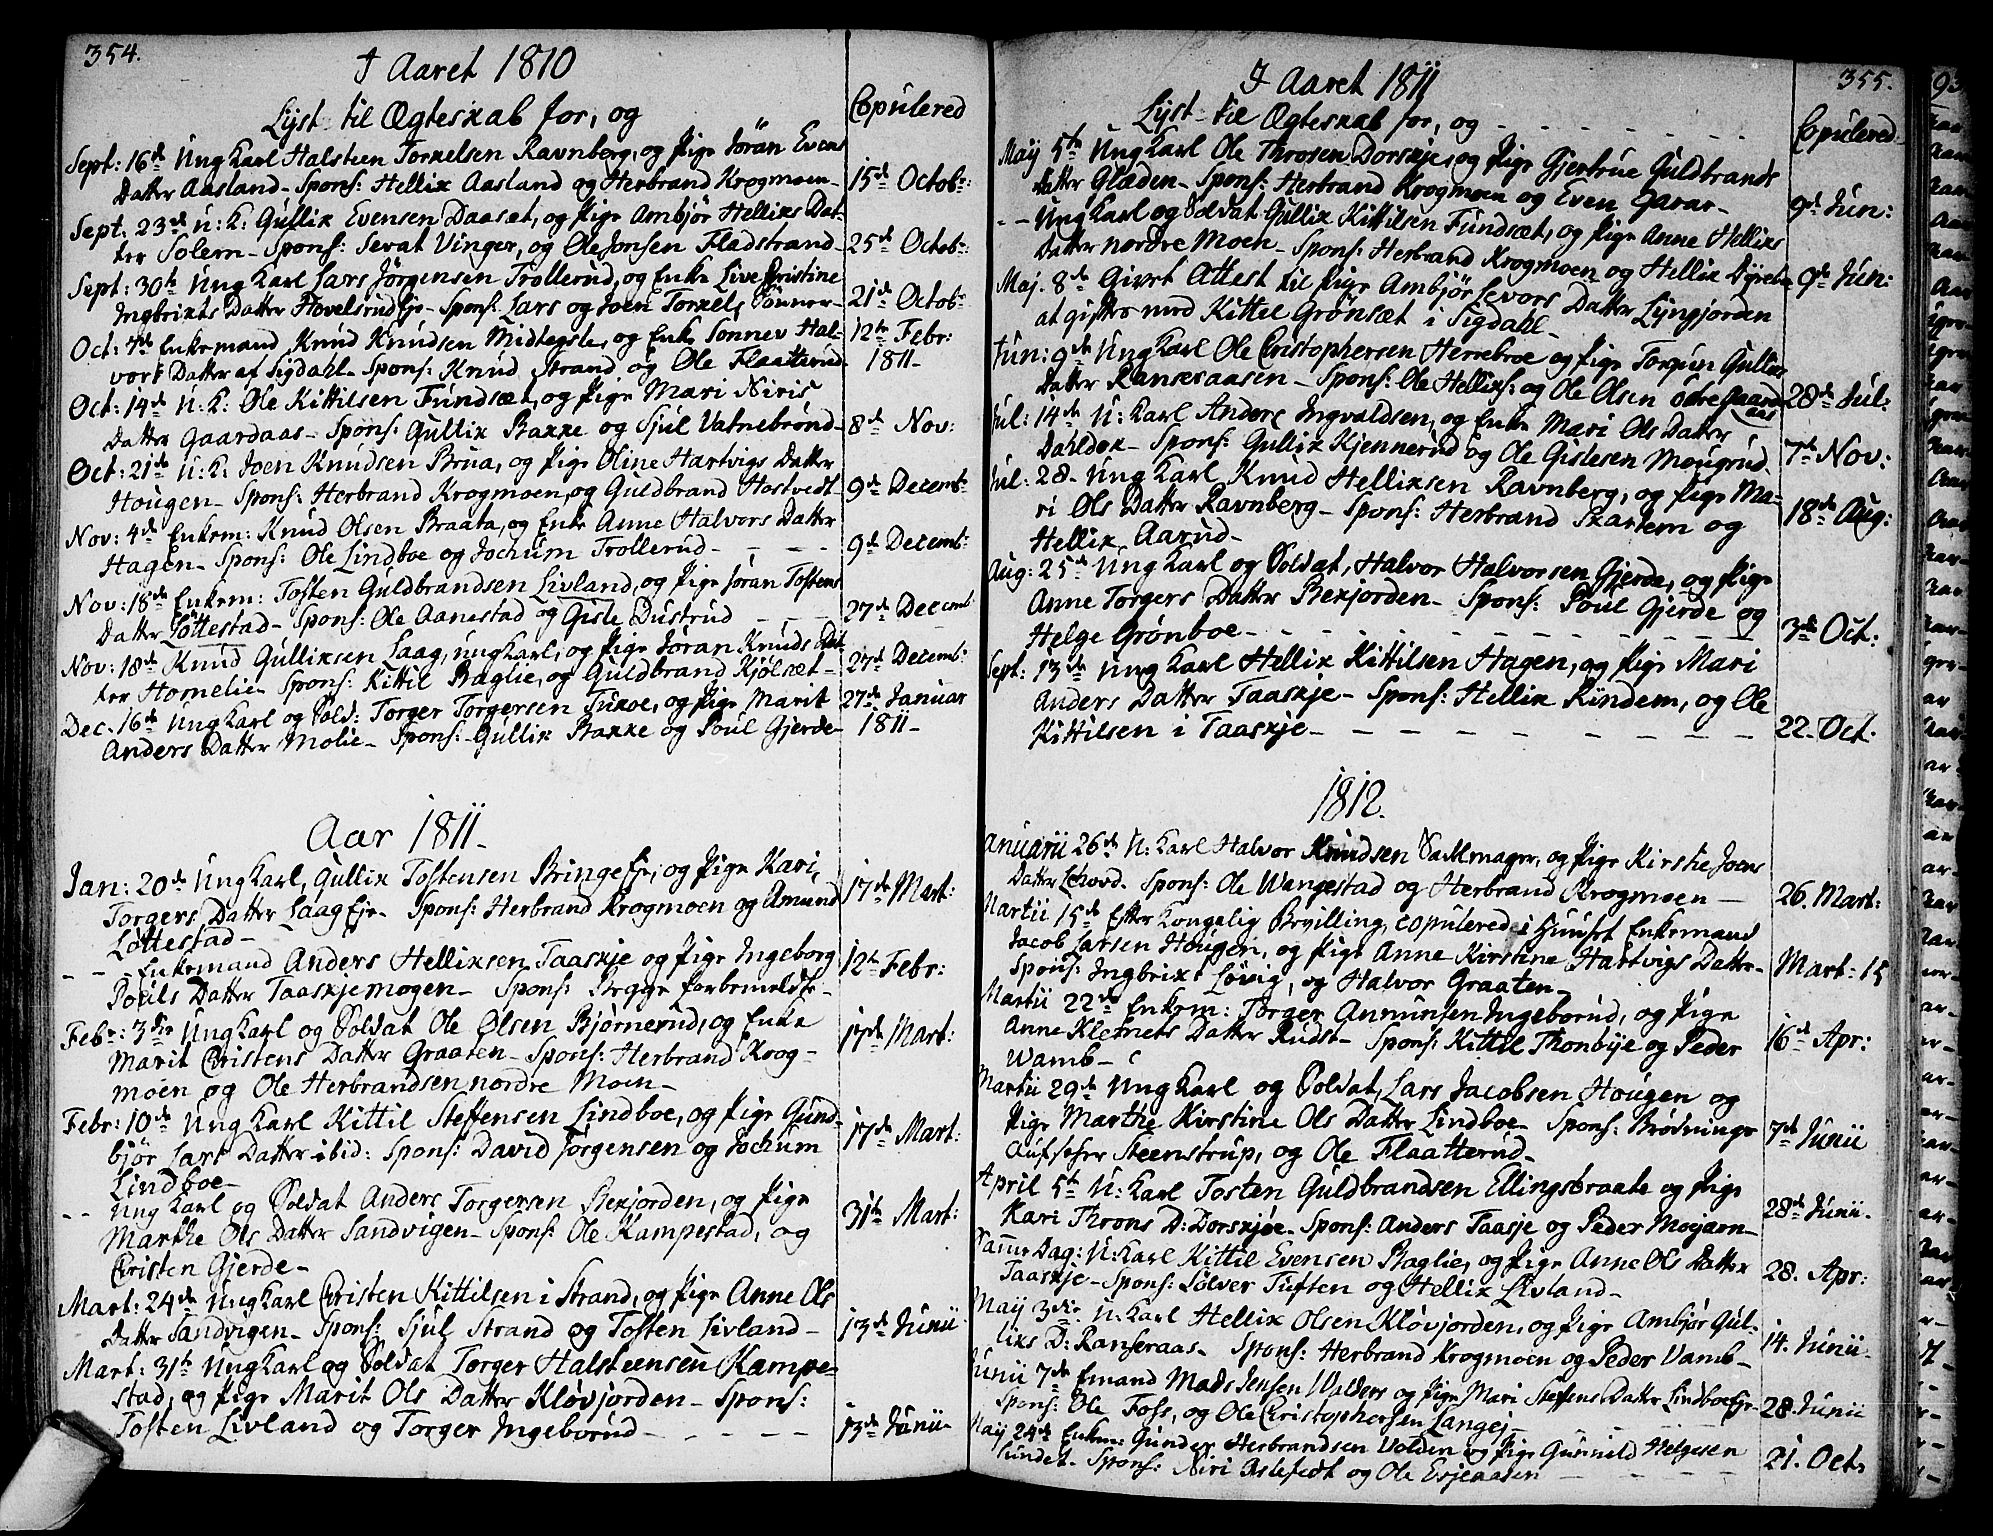 354.
I Aaret 1810
Lyst til Ægteskab for, og
Copulered
Sept: 16de Ung Karl Halsteen Torkelsen Ravnberg, og Pige Jöran Evens
Datter Aasland - Spons: Hellik Aasland og Herbrand Krogmoen - 15de Octobr:
Sept: 23de U: K: Gullik Evensen Daasæt, og Pige Ambjör Helliks Dat-
ter Solem - Spons: Sevat Vinger, og Ole Jonsen Fladstrand - 25de Octobr:
Sept: 30te Ung Karl Lars Jörgensen Trollerud, og Enke Live Christine
Ingbrikts Datter Hovelsrud Eje - Spons: Lars og Joen Torkels Sönner - 21de Octobr
Oct: 7de Enkemand Knud Knudsen Midtegsle, og Enke Sonnev Hal- 12te Febr:
vors Datter af Sigdahl - Spons: Knud Strand og Ole Flaatterud 1811 -
Oct: 14de U: K: Ole Kittilsen Fundsæt, og Pige Mari Niris
Datter Gaardaas - Spons: Gullik Bakke og Sjul Vatnebrönd - 8de Nov:
Oct: 21de U: K. Joen Knudsen Brua, og Pige Oline Hartvigs Datter
Hougen - Spons: Herbrand Krogmoen, og Guldbrand Hostvedt - 9de Decembr
Nov: 4de Enkem: Knud Olsen Braata, og Enke Anne Halvors Datter
Hagen - Spons: Ole Lindboe og Jochum Trollerud - - - - 9de Decemb:
Nov: 18de Enkem: Tosten Guldbrandsen Livland, og Pige Jöran Tostens
Datter Löttestad - Spons: Ole Aanestad og Gisle Dustrud - - - 27de Decemb
Nov: 18de Knud Gulliksen Laag, ungkarl, og Pige Jöran Knuds Dat-
ter Hornelie - Spons: Kittil Baglie, og Guldbrand Kjölsæt - 27de Decemb:
Dec. 16de Ung Karl og Sold: Torger Torgersen Tukoe, og Pige Marit 27de Januar
Anders Datter Molie - Spons: Gullik Bakke og Poul Gjerde - 1811 -
Aar 1811 -
Jan: 20de Ung Karl, Gullik Tostensen Bringe Eje, og Pige Kari,
Torgers Datter Laag Eje - Spons: Herbrand Krogmoen og Amund 17de Mart:
Löttestad -
- - - Enkemand Anders Helliksen Taaskje og Pige Ingeborg 12te Febr:
Pouls Datter Taaskjemogen - Spons: Begge forbemeldte -
Febr: 3die Ung Karl og Soldat Ole Olsen Bjørnerud, og Enke
Marit Christens Datter Graaten - Spons: Herbrand Krog- 17de Mart:
moen og Ole Herbrandsen nordre Moen -
Febr: 10de Ung Karl Kittil Steffensen Lindboe, og Pige Gund-
björ Lars Datter ibid: Spons: David Jørgensen og Jochum 17de Mart:
Lindboe -
- - Ung Karl og Soldat Anders Torgersen Bekjorden, og Pige
Marthe Ols Datter Sandvigen - Spons: Ole Kampestad, og 31te Mart:
Christen Gjerde -
Mart: 24de Ung Karl Christen Kittilsen i Strand, og Pige Anne Ols
Datter Sandvigen - Spons: Sjul Strand og Tosten Livland - 13de Junii
Mart: 31te Ung Karl og Soldat Torger Halsteensen Kampe-
stad, og Pige Marit Ols Datter Kløvjorden - Spons:
Tosten Livland og Torger Ingeborud - - - - - 13de Junii -
355.
I Aaret 1811
Lyst til Ægteskab for, og - - - - - - - -
Copulered -
Maij 5te Ung Karl Ole Throsen Dorskje, og Pige Gjertrue Guldbrands
Datter Glæden - Spons: Herbrand Krogmoen og Even Garaas - 9de Jun:
- - Ung Karl og Soldat Gullik Kittilsen Fundsæt, og Pige Anne Helliks
Datter nordre Moen - Spons: Herbrand Krogmoen og Hellik Dyrebu 9de Jun:
Maj. 8de Givet Attest til Pige Ambjör Sevors Datter Lyngjorden
at giftes med Kittel Grönsæt i Sigdahl -
Jun: 9de Ung Karl Ole Cristophersen Herreboe og Pige Torgun Gulliks
Datter Ranseraasen - Spons: Ole Helliks: og Ole Olsen öore Gaard- 28de Jul:
aas
Jul: 14de U: Karl Anders Ingvaldsen, og Enke Mari Ols Datter
Dahldok - Spons: Gullik Kjennerud og Ole Gislesen Mougrud - 7de Nov:
Jul: 28. Ung Karl Knud Helliksen Ravnberg, og Pige Ma-
ri Ols Datter Ravnberg - Spons: Herbrand Skartem og 18de Aug:
Hellik Aarud -
Aug: 25de Ung Karl og Soldat, Halvor Halvorsen Gjerde, og Pige
Anne Torgers Datter Bekjorden - Spons: Poul Gjerde og
Helge Grönboe - - - - - - - - - - - 3die Oct:
Sept: 13de Ung Karl Hellik Kittilsen Hagen, og Pige Mari
Anders Datter Taaskje - Spons: Hellik Rindem, og Ole
Kittilsen i Taaskje - - - - - - - - - 22. Oct.
1812.
Januarii 26de U: Karl Halvor Knudsen Sadlmager, og Pige Kirstie Joens
Datter Lehovd. Spons: Ole Wangestad og Herbrand Krogmoen - 26. Mart:
Martii 15de Efter kongelig Bevilling, copulered i Huuset Enkemand
Jacob Larsen Hougen, og Pige Anne Kirstine Hartvigs Datter - Mart: 15
Spons: Ingbrikt Lövig, og Halvor Graaten -
Martii 22de Enkem: Torger Anmunsen Ingeborud, og Pige
Anne Klemets Datter Rudst - Spons: Kittil Thonbye og Peder 16de Apr:
Wamb -
Martii 29de Ung Karl og Soldat, Lars Jacobsen Hougen og
Pige Marthe Kirstine Ols Datter Lindboe - Spons: Brødnings 7de Junii
Aufseher Steenstrup, og Ole Flaatterud -
April 5te U: Karl Tosten Guldbrandsen Ellingsbraate og Pige
Kari Throns D: Dorskjöe - Spons: Anders Taasje og Peder Mojarn - 28de Junii -
Samme Dag: U: Karl Kittil Evensen Baglie, og Pige Anne Ols Datter
Taaskje - Spons: Sølver Tuften og Hellik Livland - 28. Apr:
Maij 3die U: Karl Hellik Olsen Kløvjorden, og Pige Ambjør Gul-
liks D: Ranseraas - Spons: Herbrand Krogmoen og Peder Vamb - 14. Junii -
Junii 7de Emand Mads Jensen Walders og Pige Mari Steffens Datter Lindboe Eje -
Spons: Ole Foss, og Ole Christophersen Langej - 28. Junii
Maij 24de Enkem: Gunder Herbrandsen Volden og Pige Gunnild Helgesen
Sundet - Spons: Niri Aslefedt og Ole Evjeaasen - - - - - 21. Oct: